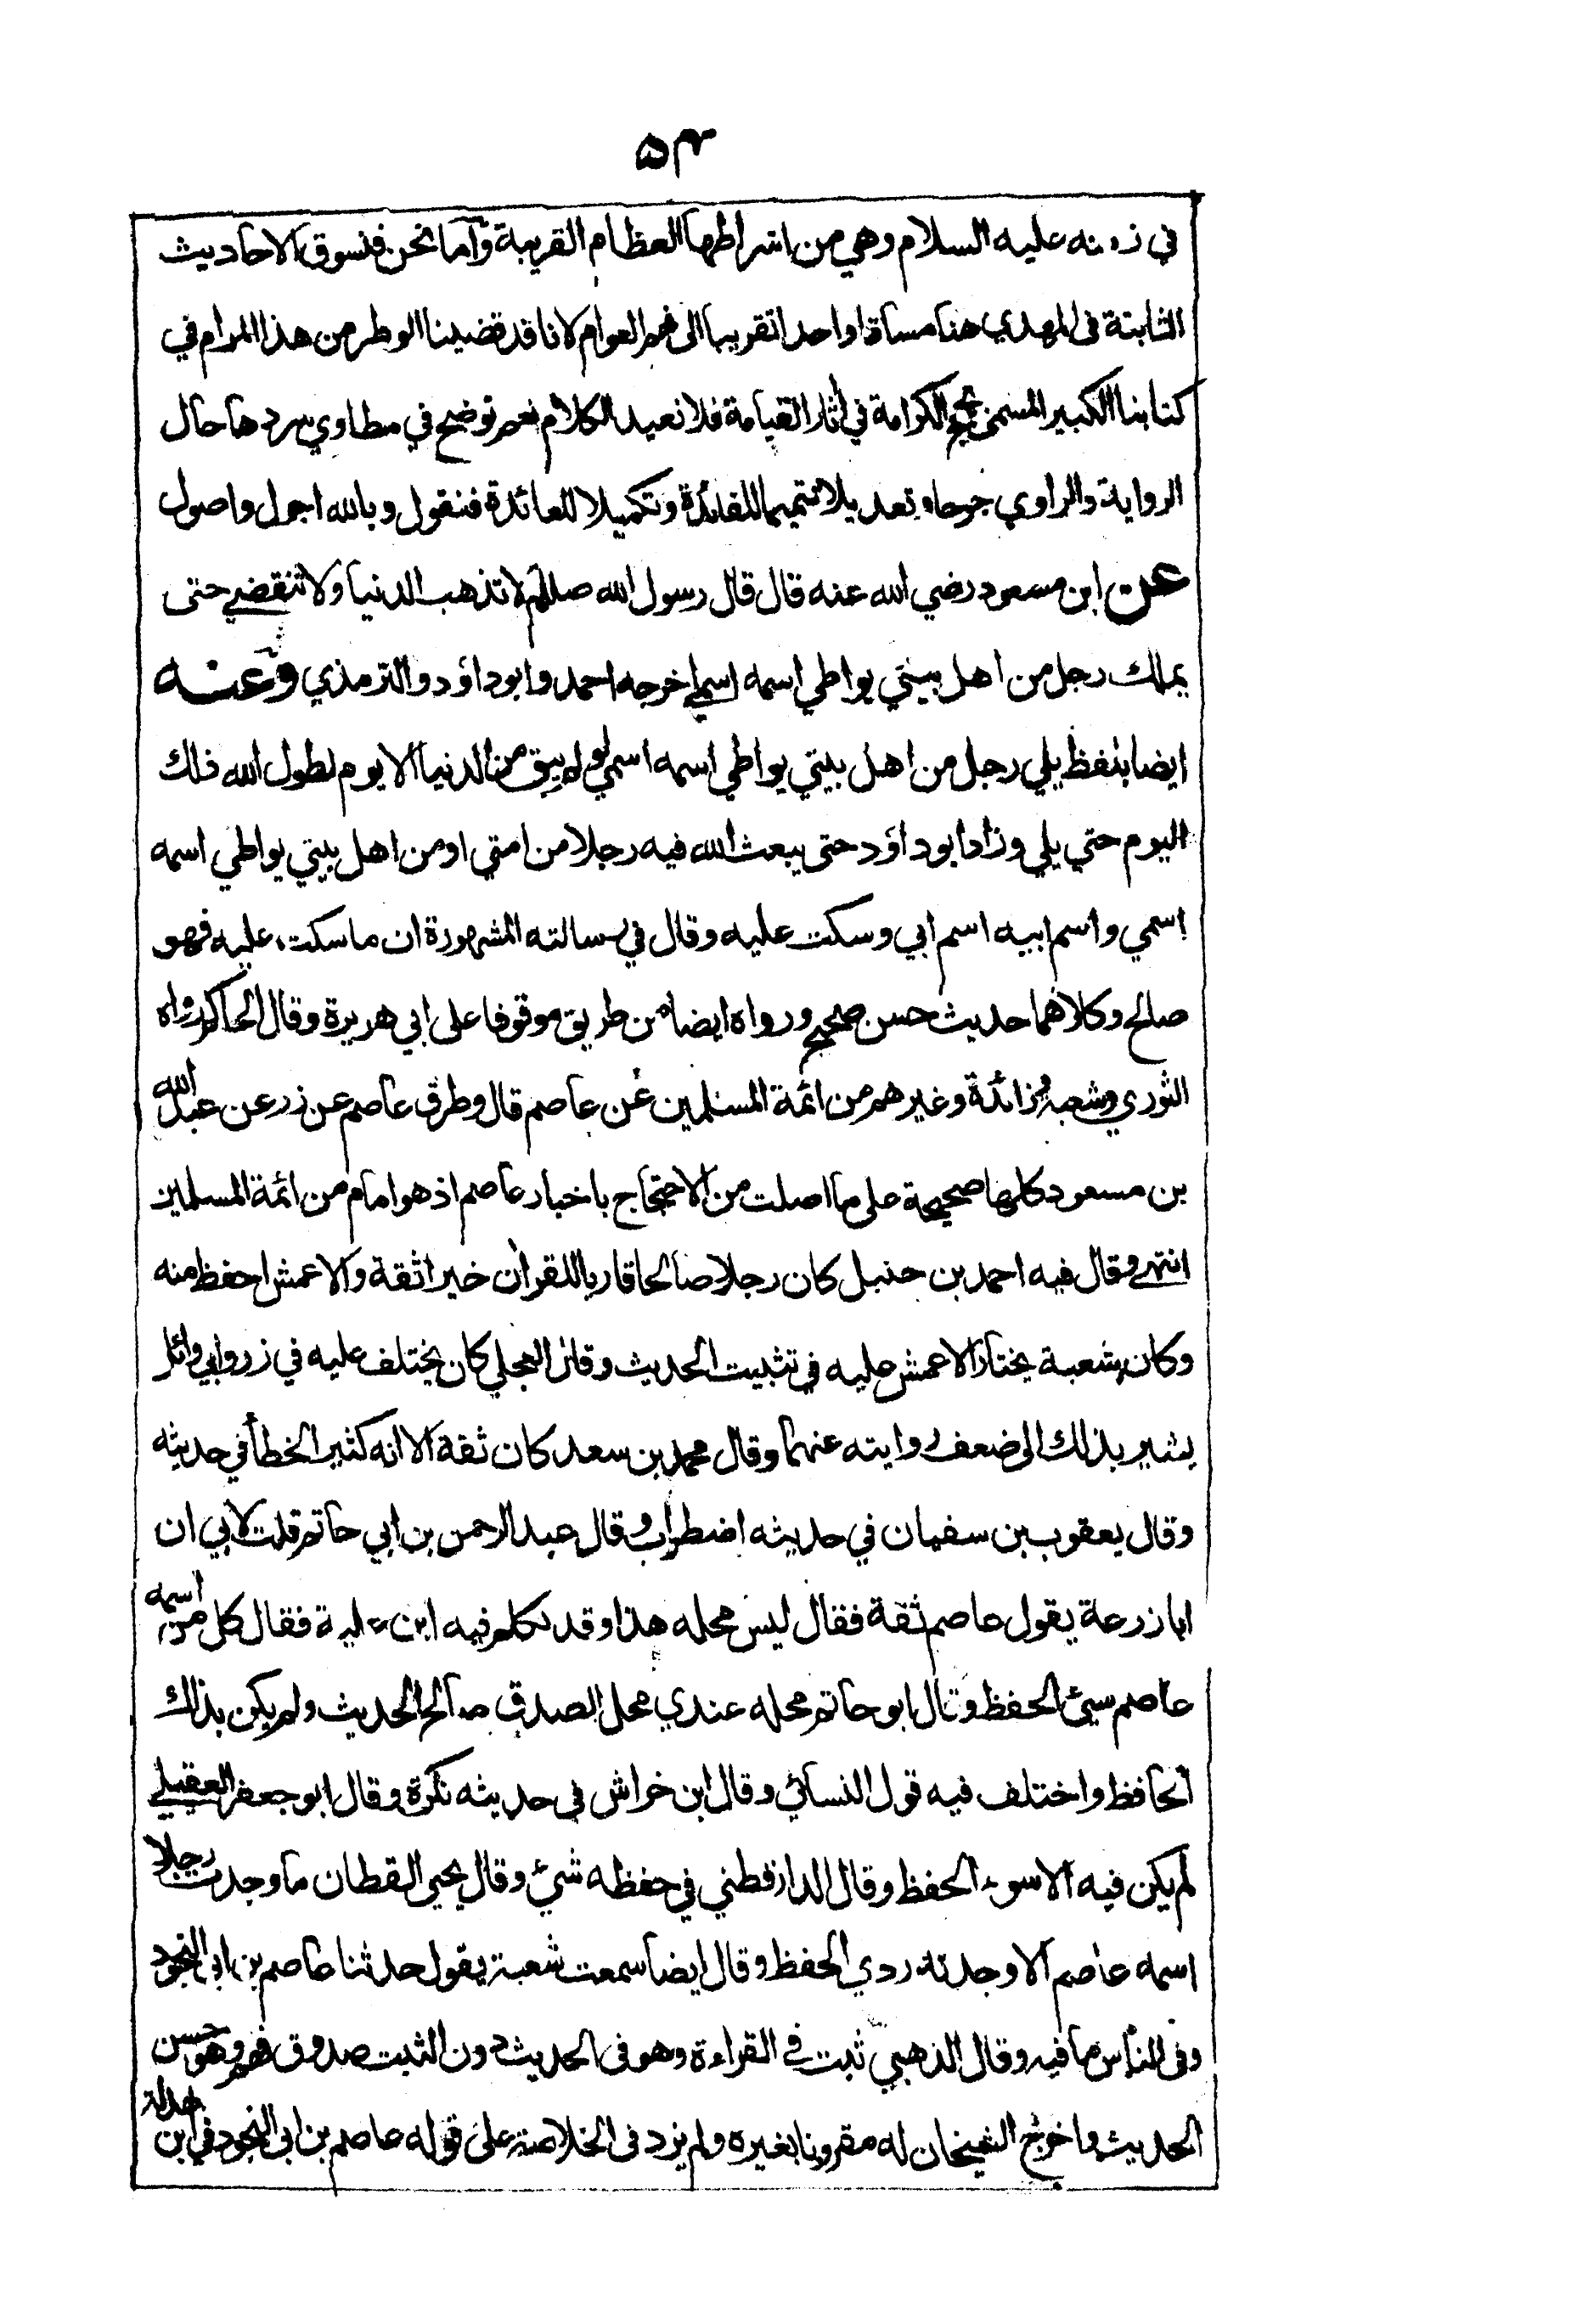 ٥٣
في زمنه عليه السلام وهي من اشراطها العظام القريبة وآما نحن فنسوق الاحاديث
الثابتة فى المهدي هنا مساقا واحدا تقريبا الى فهم العوام لانا قد قضينا الوطر من هذا المرام في
كتابنا الكبير المسمى بحجج الكرامة في اثار القيامة فلا نعيد الكلام نعم نوضح في مطاوي سردها حال
الرواية والراوي جرحا وتعديلا تتميما للفائدة وتكميلا للعائدة فنقول وبالله اجول واصول
عن ابن مسعود رضي الله عنه قال قال رسول الله صللم لا تذهب الدنيا ولا تنقضي حتى
يملك رجل من اهل بيتي يواطي اسمه اسمي اخرجه احمد وابو داؤد والترمذي وعنه
ايضا بلفظ يلي رجل من اهل بيتي يواطي اسمه اسمي لو لم يبق من الدنيا الا يوم لطول الله ذلك
اليوم حتي يلي وزاد ابو داؤد حتى يبعث الله فيه رجلا من امتي او من اهل بيتي يواطي اسمه
اسمي واسم ابيه اسم ابي وسكت عليه وقال في رسالته المشهورة ان ما سكت عليه فهو
صالح وكلاهما حديث حسن صحيح ورواه ايضا من طريق موقوفا على ابي هريرة وقال الحاكم رواه
الثوري وشعبة وزائدة وغيرهم من ائمة المسلمين عن عاصم قال وطرق عاصم عن زر عن عبد الله
بن مسعود كلها صحيحة على ما اصلت من الاحتجاج باخبار عاصم اذ هو امام من ائمة المسلمين
انتهى وقال فيه احمد بن حنبل كان رجلا صالحا قاريا للقرآن خيرا ثقة والاعمش احفظ منه
وكان شعبة يختار الاعمش عليه في تثبيت الحديث وقال العجلي كان يختلف عليه في زر وابي وائل
يشير بذلك الى ضعف روايته عنهما وقال محمد بن سعد كان ثقة الا انه كثير الخطأ في حديثه
وقال يعقوب بن سفيان في حديثه اضطراب وقال عبد الرحمن بن ابي حاتم قلت لابي ان
ابا زرعة يقول عاصم ثقة فقال ليس محله هذا وقد تكلم فيه ابن علية فقال كل من اسمه
عاصم سيئ الحفظ وقال ابو حاتم محله عندي محل الصدق صالح الحديث ولم يكن بذلك
الحافظ واختلف فيه قول النسائي وقال ابن خراش في حديثه نكرة وقال ابو جعفر العقيلي
لم يكن فيه الا سوء الحفظ وقال الدارقطني في حفظه شئ وقال يحيى القطان ما وجدت رجلا
اسمه عاصم الا وجدته ردي الحفظ وقال ايضا سمعت شعبة يقول حدثنا عاصم بن ابي النجود
وفى الناس ما فيه وقال الذهبي ثبت في القراءة وهو فى الحديث دون الثبت صدوق فهم وهو حسن
الحديث واخرج الشيخان له مقرونا بغيره ولم يزد فى الخلاصة على قوله عاصم بن ابى النجود في ابن بهدلة